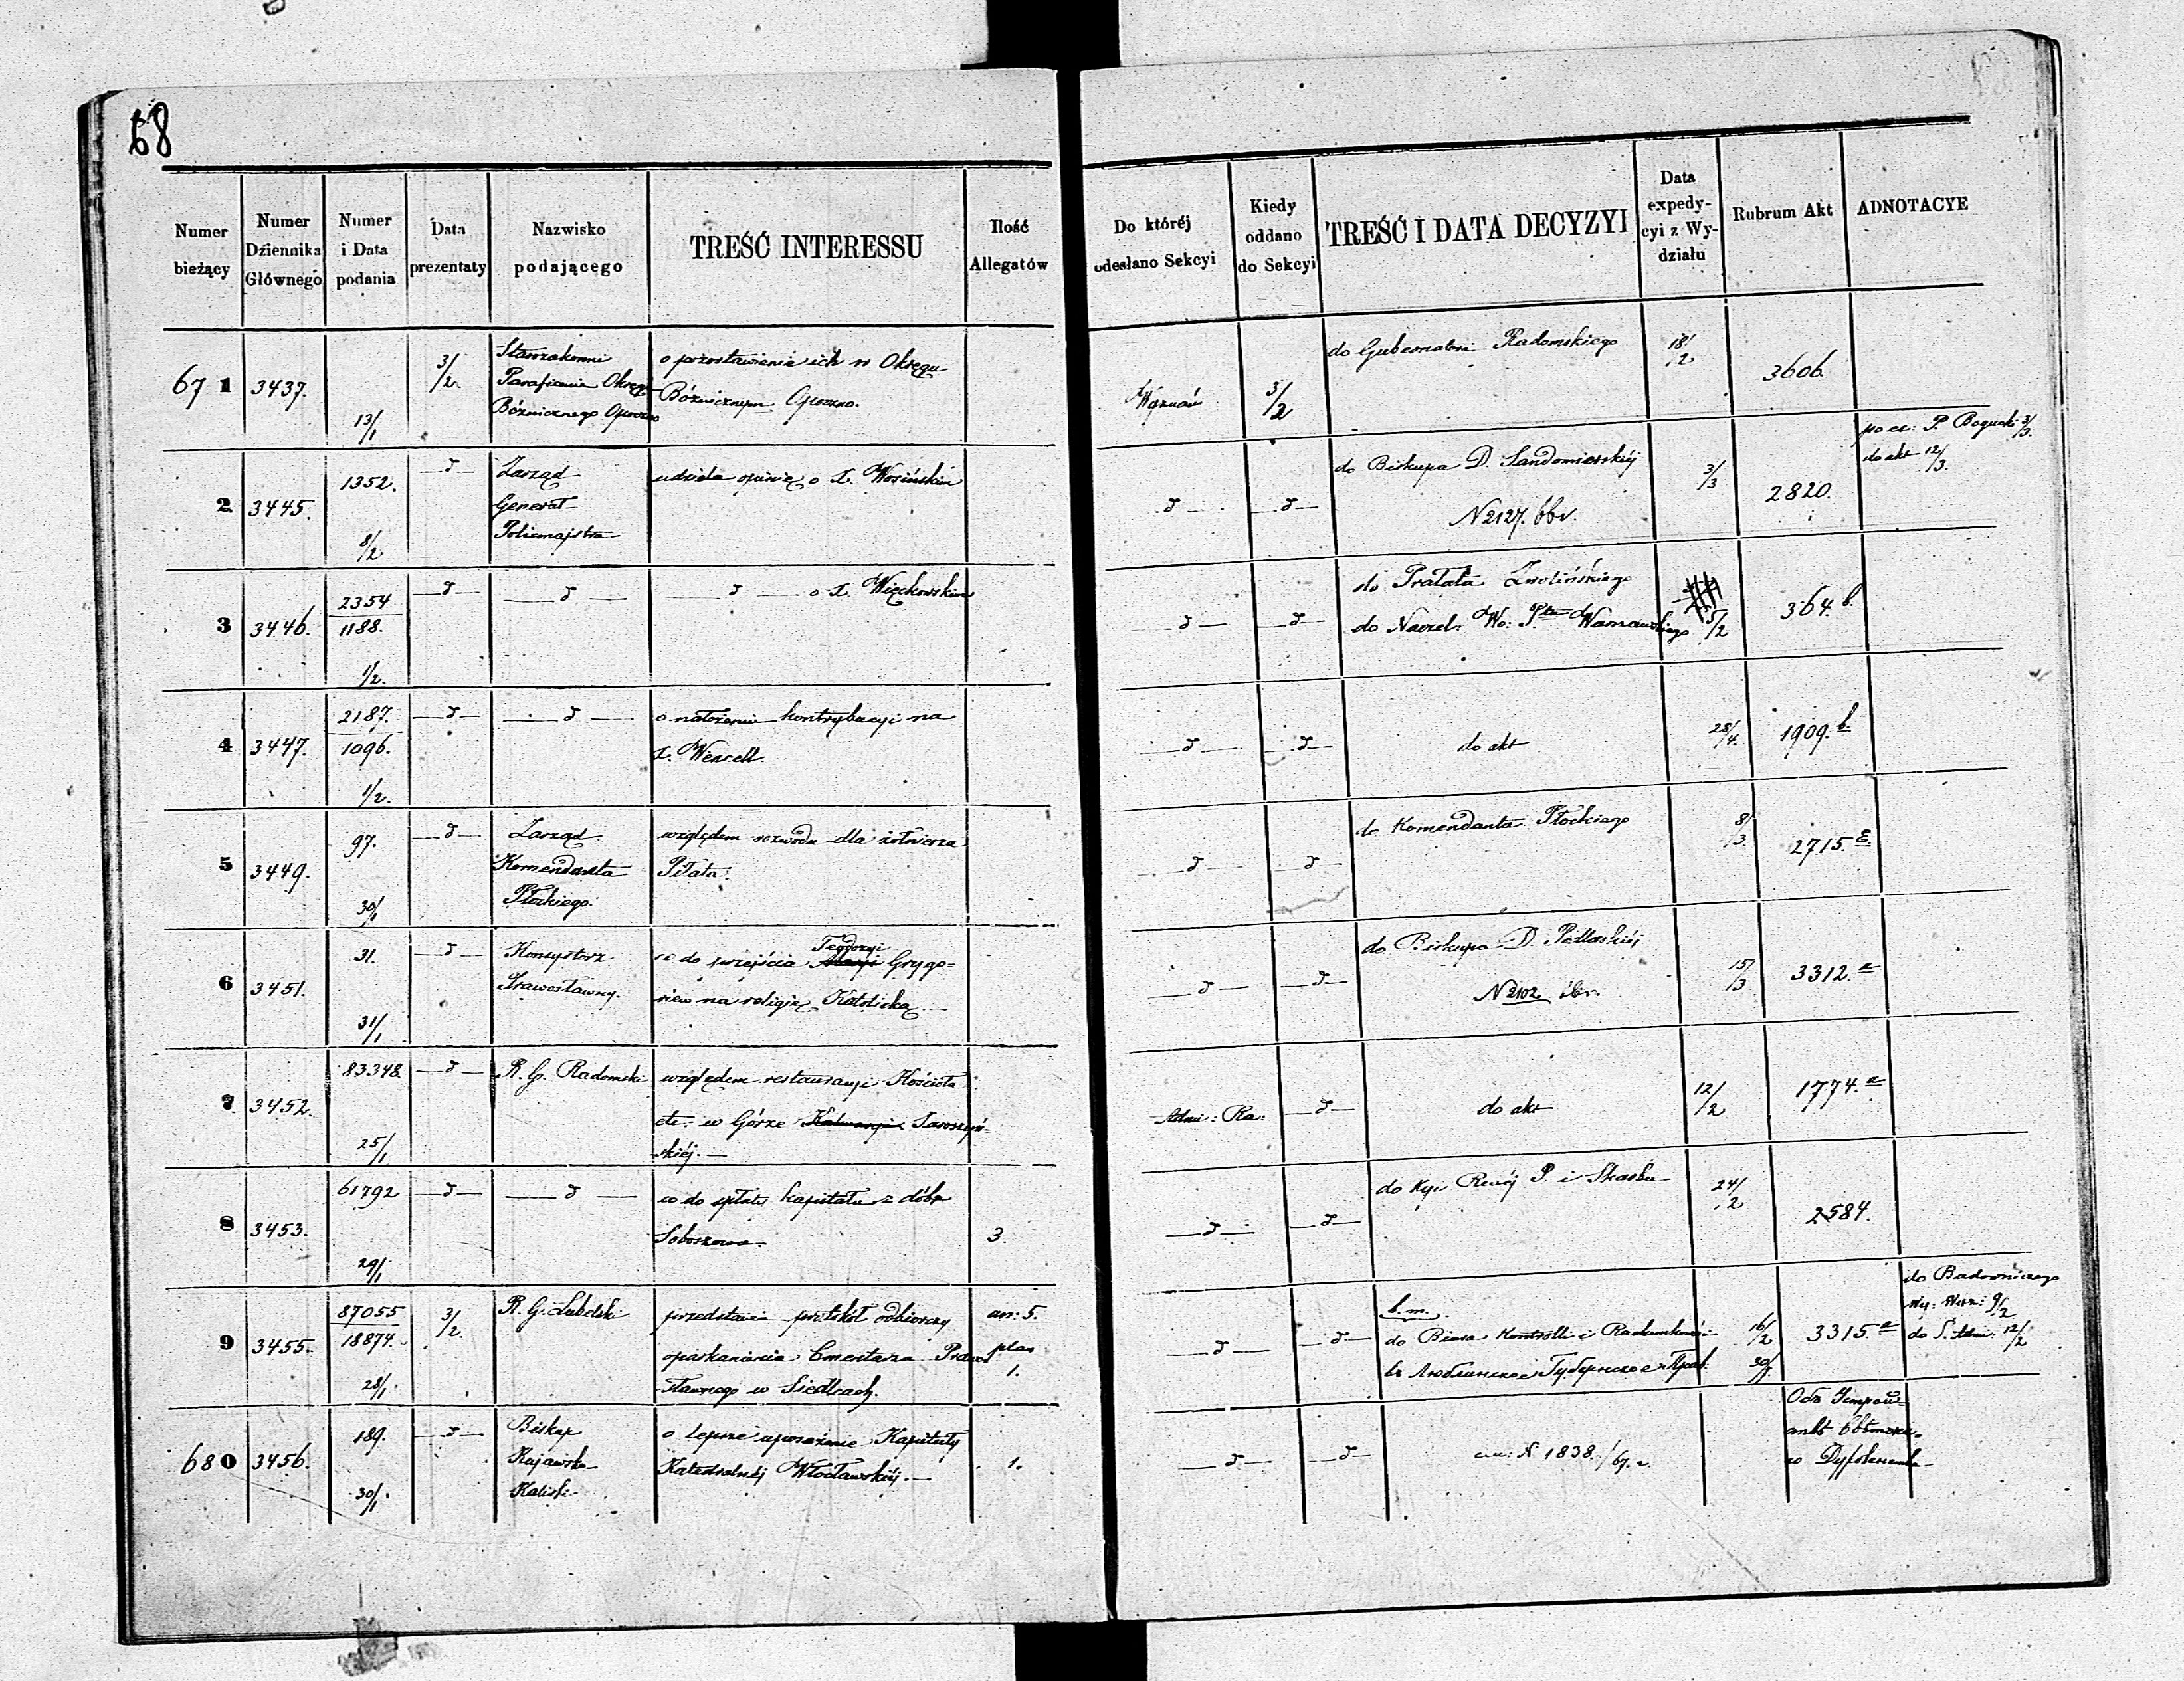 68
Numer bieżący
Numer Dziennika Głównego
Numer i Data podania
Data prezentaty
Nazwisko podającego
TREŚĆ INTERESSU
Ilość Allegatów
Do któréj odesłano Sekcyi
Kiedy oddano do Sekcyi
TREŚĆ I DATA DECYZYI
Data expedycyi z Wydziału
Rubrum Akt
ADNOTACYE
671 3437. 13/1 3/2 Starozakonni o pozostawienie ich w Okręgu 3/2 do Gubernatora Radomskiego 18/2 3606.
Parafianie Okręgu Bóżnicznym Opoczno.
Bóżnicznego Opoczno
2 3445. 1352. 8/2 — d — Zarząd udziela opinię o X. Wosińskim — d — — d — do Biskupa D. Sandomierskiéj 3/3 2820. P. Bogucki 3/3.
Generał N 2127. do akt 12/3.
Policmajstra
3 3446. 2354 — d — — d — — d — o X. Więckowskim — d — — d — do Prałata Zwolińskiego 364. b.
1188. 1/2. do Naczel: Wo: Ptu Warszawskiego 5/2
4 3447. 2187. — d — — d — o nałożeniu kontrybucyi na — d — — d — do akt 28/4. 1909. b.
1096. 1/2. X. Wensell.
5 3449. 97. 30/1 — d — Zarząd względem rozwodu dla żołnierza — d — — d — do Komendanta Płockiego 8/3 2715.
Komendanta Piłata.
Płockiego.
6 3451. 31. 31/1 — d — Konsystorz co do przejścia Teodozyi Grygo= — d — — d — do Biskupa D. Podlaskiéj 15/3 3312. a
Prawosławny. riew na religię Katolicką. N 2102
7 3452. 83348. 25/1 — d — R. G. Radomski względem restauracyi Kościoła Adm: Ra: — d — do akt 12/2 1774. a
etc. w Górze Kalwaryi
skiéj. —
8 3453. 61792 29/1 — d — — d — co do spłaty kapitału z dóbr 3. — d — — d — do Kyi Rząéj P. i Skarbu 24/2 2584.
9 3455. 87055 3/2. R. G. Lubelski przedstawia protokół odbiorczy an: 5. — d — — d — b. m. 3315. a do Budowniczego
18874. 28/1. oparkanienia Cmentarza Prawo plan 1. do Biura Kontrolli i Rachunkowości 16/2 9/2
sławnego w Siedlcach. въ Люблинское Губернское Прав: 30/ do S. Adm: 12/2
680 3456. 189. 30/1. — d — Biskup o lepsze uposażenie Kapituły 1. — d — — d — N 1838./67.
Kujawsko Katedralnéj Włocławskiéj. —
Kaliski